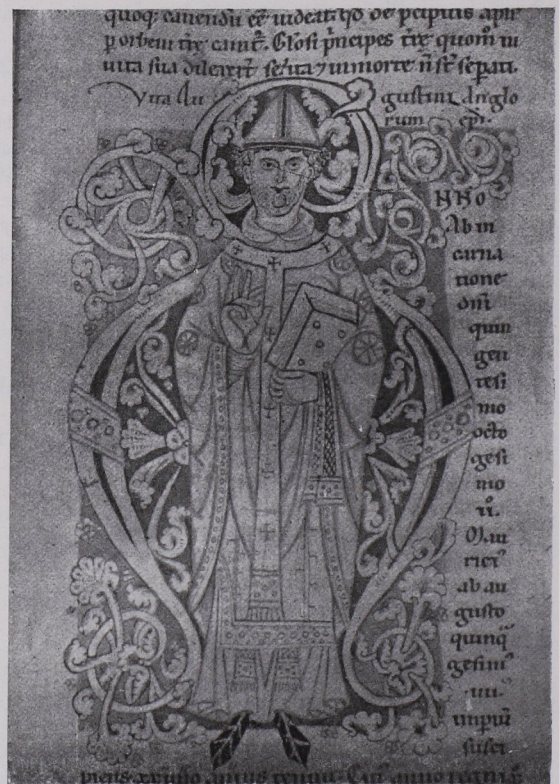 quoq; cauendū eē uideat͛. qd̄ de p̄cipuis aplīs
p orbem tr̄e canit͛. Glosi p̄ncipes tr̄e quom̄ in
uita sua dilexer̄t se: ita ⁊ in morte n̄ st̄ sep̄ati.
Vita Au gustini Anglo
rum ep̄i.
NNO
Ab in
carna
tione
dn̄i
quin
gen
tesi
mo
octo
gesi
mo
ii.
Mau
rici᷒
ab au
gusto
quinq̄
gesim᷒
iiii.
impiū
susci
piens